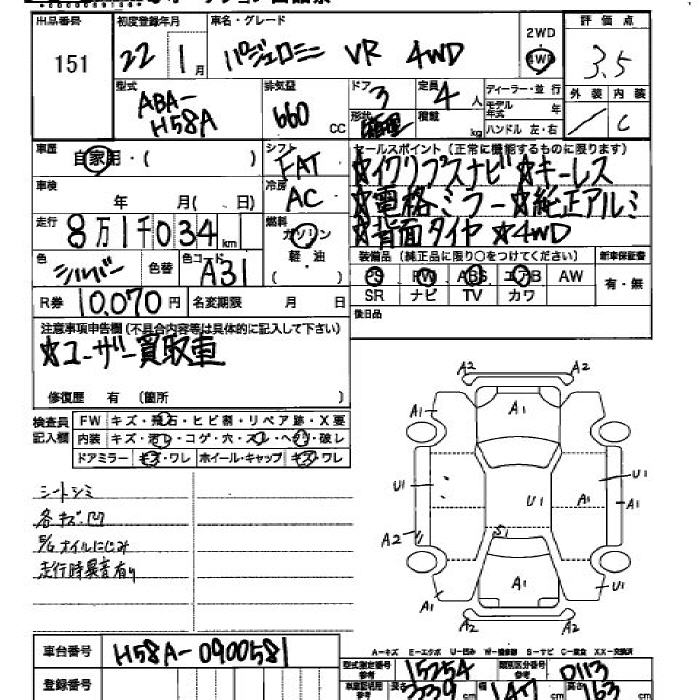 出品番号 151
初度登録年月 22 1月
車名・グレード パジェロミニ VR 4WD
2WD
4WD
評価点 3.5
外装 / 内装 C
型式 ABA-H58A
排気量 660 CC
ドア 3
定員 4人
形状
積載 kg
ディーラー・並行
モデル年式 年
ハンドル 左・右
車歴 自家用・( )
シフト FAT
セールスポイント (正常に機能するものに限ります)
☆イクリプスナビ ☆キーレス
☆電格ミラー ☆純正アルミ
☆背面タイヤ ☆4WD
車検 年 月( 日)
冷房 AC
走行 8万1千034km
燃料 ガソリン 軽・油
色 シルバー 色替 色コード A31
装備品 (純正品に限り○をつけてください) 新車保証書
PS PW ABS エアB AW 有・無
SR ナビ TV カワ
R券 10,070円 名変期限 月 日
後日品
注意事項申告欄 (不具合内容等は具体的に記入して下さい)
☆ユーザー買取車
修復歴 有 (箇所 )
検査員記入欄
FW キズ・飛石・ヒビ割・リペア跡・X要
内装 キズ・汚レ・コゲ・穴・スレ・ヘタリ・破レ
ドアミラー キズ・ワレ ホイール・キャップ キズ・ワレ
シートシミ
各キズ凹
E/G オイルにじみ
走行時異音有り
A2 A2
A1 A1 A1
U1 U1 A1 U1 A1
A2 S1
A1 A1 U1
A2 A2
車台番号 H58A-0900581
A-キズ E-エクボ U-凹み W-補修跡 S-サビ C-腐食 XX-交換済
型式指定番号 15254 類別区分番号 0113
登録番号
長さ 339cm 幅 147cm 高さ 163cm